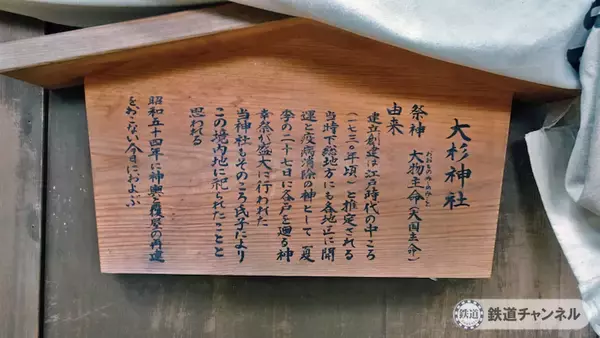 大杉神社
祭神　大物主命（大国主命）
おおものぬしのみこと
由来
建立創建は江戸時代の中ころ
（一七三〇年頃）と推定される
当時下総地方にも各地区に開
運と疫病消除の神として夏
季の二十七日に各戸を廻る神
幸祭が盛大に行われた
当神社もそのころ氏子により
この境内地に祀られたことと
思われる
昭和五十四年に神輿と覆屋の再建
をおこない今日におよぶ
鉄道 鉄道チャンネル